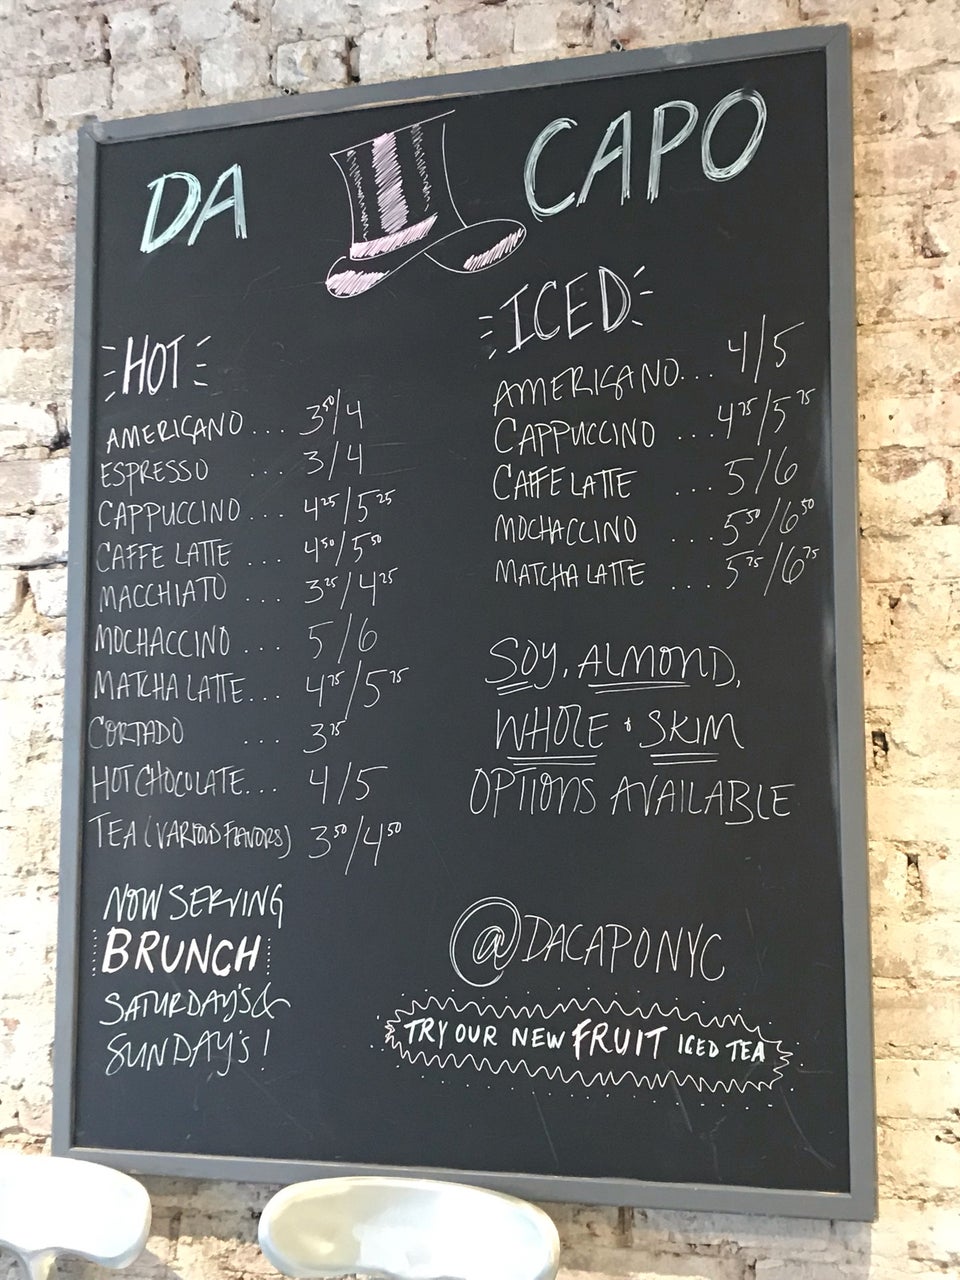 DA CAPO
HOT
AMERICANO ... 3⁵⁰/4
ESPRESSO ... 3/4
CAPPUCCINO ... 4²⁵/5²⁵
CAFFE LATTE ... 4⁵⁰/5⁵⁰
MACCHIATO ... 3²⁵/4²⁵
MOCHACCINO ... 5/6
MATCHA LATTE ... 4⁷⁵/5⁷⁵
CORTADO ... 3⁷⁵
HOT CHOCOLATE ... 4/5
TEA (VARIOUS FLAVORS) 3⁵⁰/4⁵⁰
NOW SERVING
BRUNCH
SATURDAY'S &
SUNDAY'S!
ICED
AMERICANO ... 4/5
CAPPUCCINO ... 4⁷⁵/5⁷⁵
CAFFE LATTE ... 5/6
MOCHACCINO ... 5⁵⁰/6⁵⁰
MATCHA LATTE ... 5⁷⁵/6⁷⁵
SOY, ALMOND,
WHOLE & SKIM
OPTIONS AVAILABLE
@DACAPONYC
TRY OUR NEW FRUIT ICED TEA